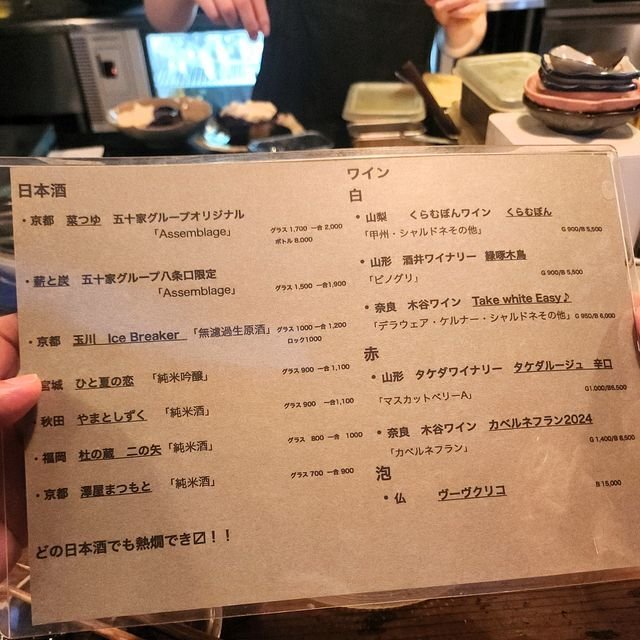 日本酒
・京都 菜つゆ 五十家グループオリジナル
「Assemblage」 グラス 1,700 一合 2,000
ボトル 8.000
・薪と炭 五十家グループ八条口限定
「Assemblage」 グラス 1,500 一合1,900
・京都 玉川 Ice Breaker 「無濾過生原酒」 グラス 1000 一合 1,200
ロック1000
宮城 ひと夏の恋 「純米吟醸」 グラス 900 一合 1,100
秋田 やまとしずく 「純米酒」 グラス 900 一合1,100
・福岡 杜の蔵 二の矢 「純米酒」 グラス 800 一合 1000
・京都 澤屋まつもと 「純米酒」 グラス 700 一合 900
どの日本酒でも熱燗でき〼！！
ワイン
白
・山梨 くらむぼんワイン くらむぼん
「甲州・シャルドネその他」 G 900/B 5,500
・山形 酒井ワイナリー 緑啄木鳥
「ピノグリ」 G 900/B 5,500
・奈良 木谷ワイン Take white Easy♪
「デラウェア・ケルナー・シャルドネその他」 G 950/B 6,000
赤
・山形 タケダワイナリー タケダルージュ 辛口
「マスカットベリーA」 G1.000/B6,500
・奈良 木谷ワイン カベルネフラン2024
「カベルネフラン」 G 1,400/B 8,500
泡
・仏 ヴーヴクリコ B 15,000